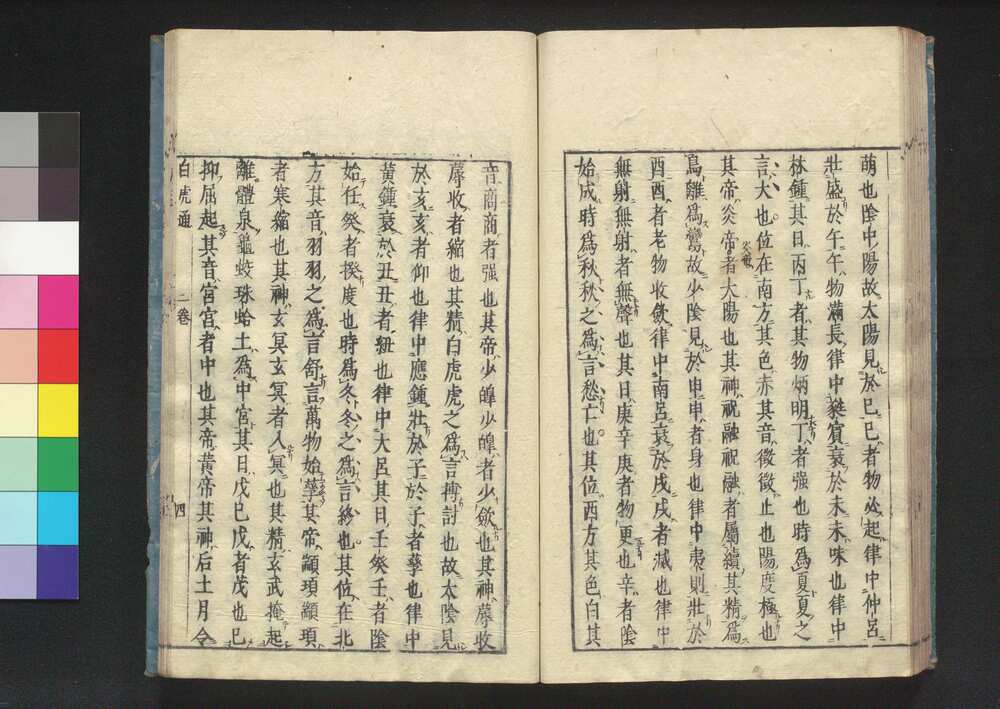 萌也陰中陽故太陽見於巳巳者物必起律中仲呂
壯盛於午午物滿長律中蕤賓衰於未未味也律中
林鍾其日丙丁者其物炳明丁者强也時爲夏夏之
言大也位在南方其色赤其音徵徵止也陽度極也
其帝炎帝者太陽也其神祝融祝融者屬續其精爲
鳥離爲鸞故少陰見於申申者身也律中夷則壯於
酉酉者老物收斂律中南呂衰於戌戌者滅也律中
無射無射者無聲也其日庚辛庚者物更也辛者陰
始成時爲秋秋之爲言愁亡也其位西方其色白其
音商商者强也其帝少皥少皥者少斂也其神蓐收
蓐收者縮也其精白虎虎之爲言搏討也故太陰見
於亥亥者仰也律中應鍾壯於子於子者孳也律中
黃鍾衰於丑丑者紐也律中大呂其日壬癸壬者陰
始任癸者揆度也時爲冬冬之爲言終也其位在北
方其音羽羽之爲言舒言萬物始孳其帝顓頊顓頊
者寒縮也其神玄冥玄冥者入冥也其精玄武掩起
離體泉龜蛟珠蛤土爲中宮其日戊己戊者茂也己
抑屈起其音宮宮者中也其帝黃帝其神后土月令
白虎通 二卷 四